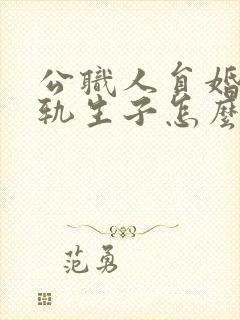 公職人員婚
軌生子怎麼
范勇